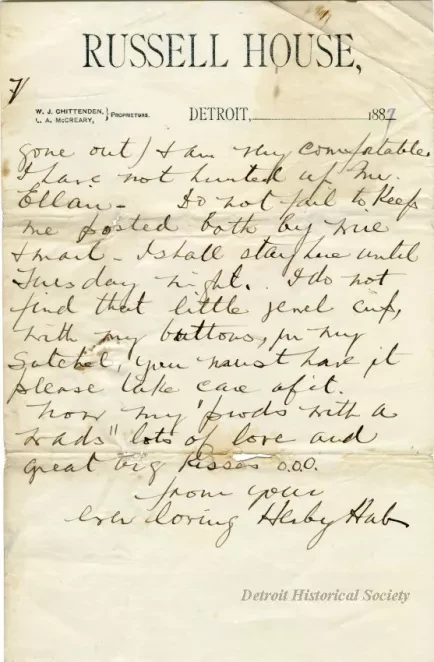 RUSSELL HOUSE,
7/
W. J. CHITTENDEN,
L. A. McCREARY, } PROPRIETORS.
DETROIT, 1887
gone out) I am very comfortable
I have not hunted up Mr.
Ellair - Do not fail to keep
me posted both by wire
& mail - I shall stay here until
Tuesday night. I do not
find that little jewel cup,
with my buttons, in my
Satchel, you must have it
please take care of it.
Now my "prods with a
wads" lots of love and
great big kisses o.o.o.
from your
ever loving Hub
Detroit Historical Society